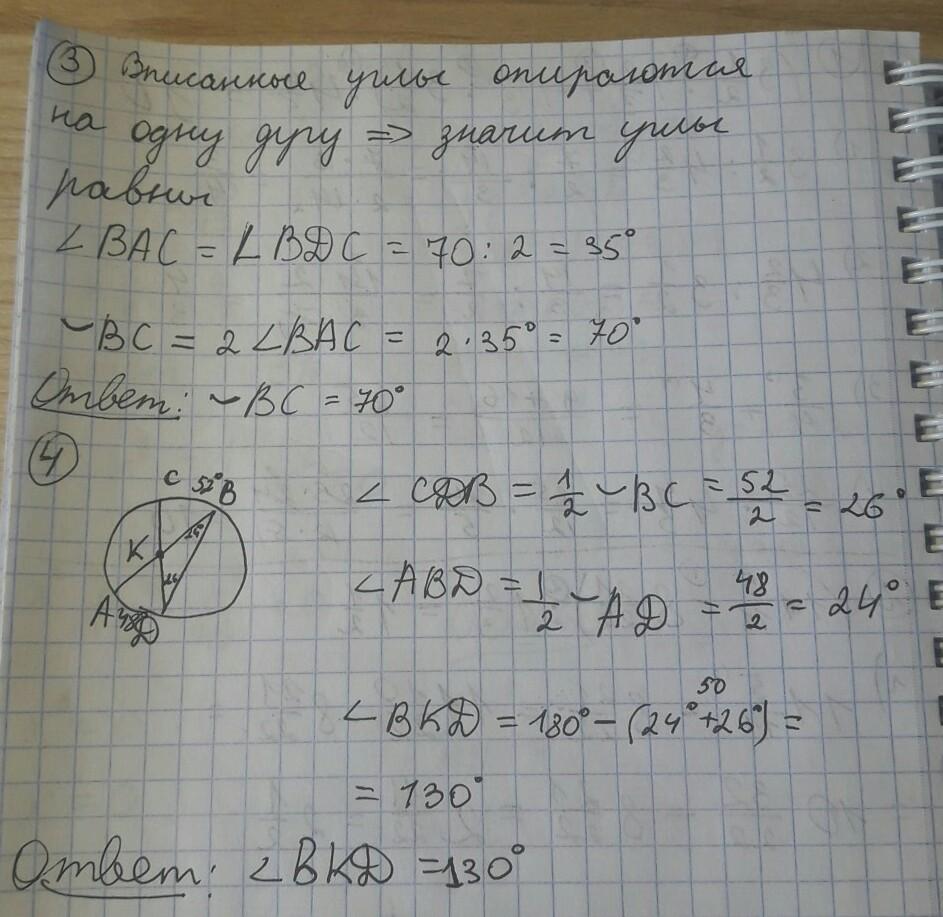 ③ Вписанные углы опираются
на одну дугу => значит углы
равны
∠BAC = ∠BDC = 70 : 2 = 35°
⌣BC = 2 ∠BAC = 2 · 35° = 70°
Ответ: ⌣BC = 70°
④
C 52° B
K
A 48 D
∠ CDB = 1/2 ⌣BC = 52/2 = 26°
∠ABD = 1/2 ⌣AD = 48/2 = 24°
50
∠BKD = 180° - (24° + 26°) =
= 130°
Ответ: ∠BKD = 130°